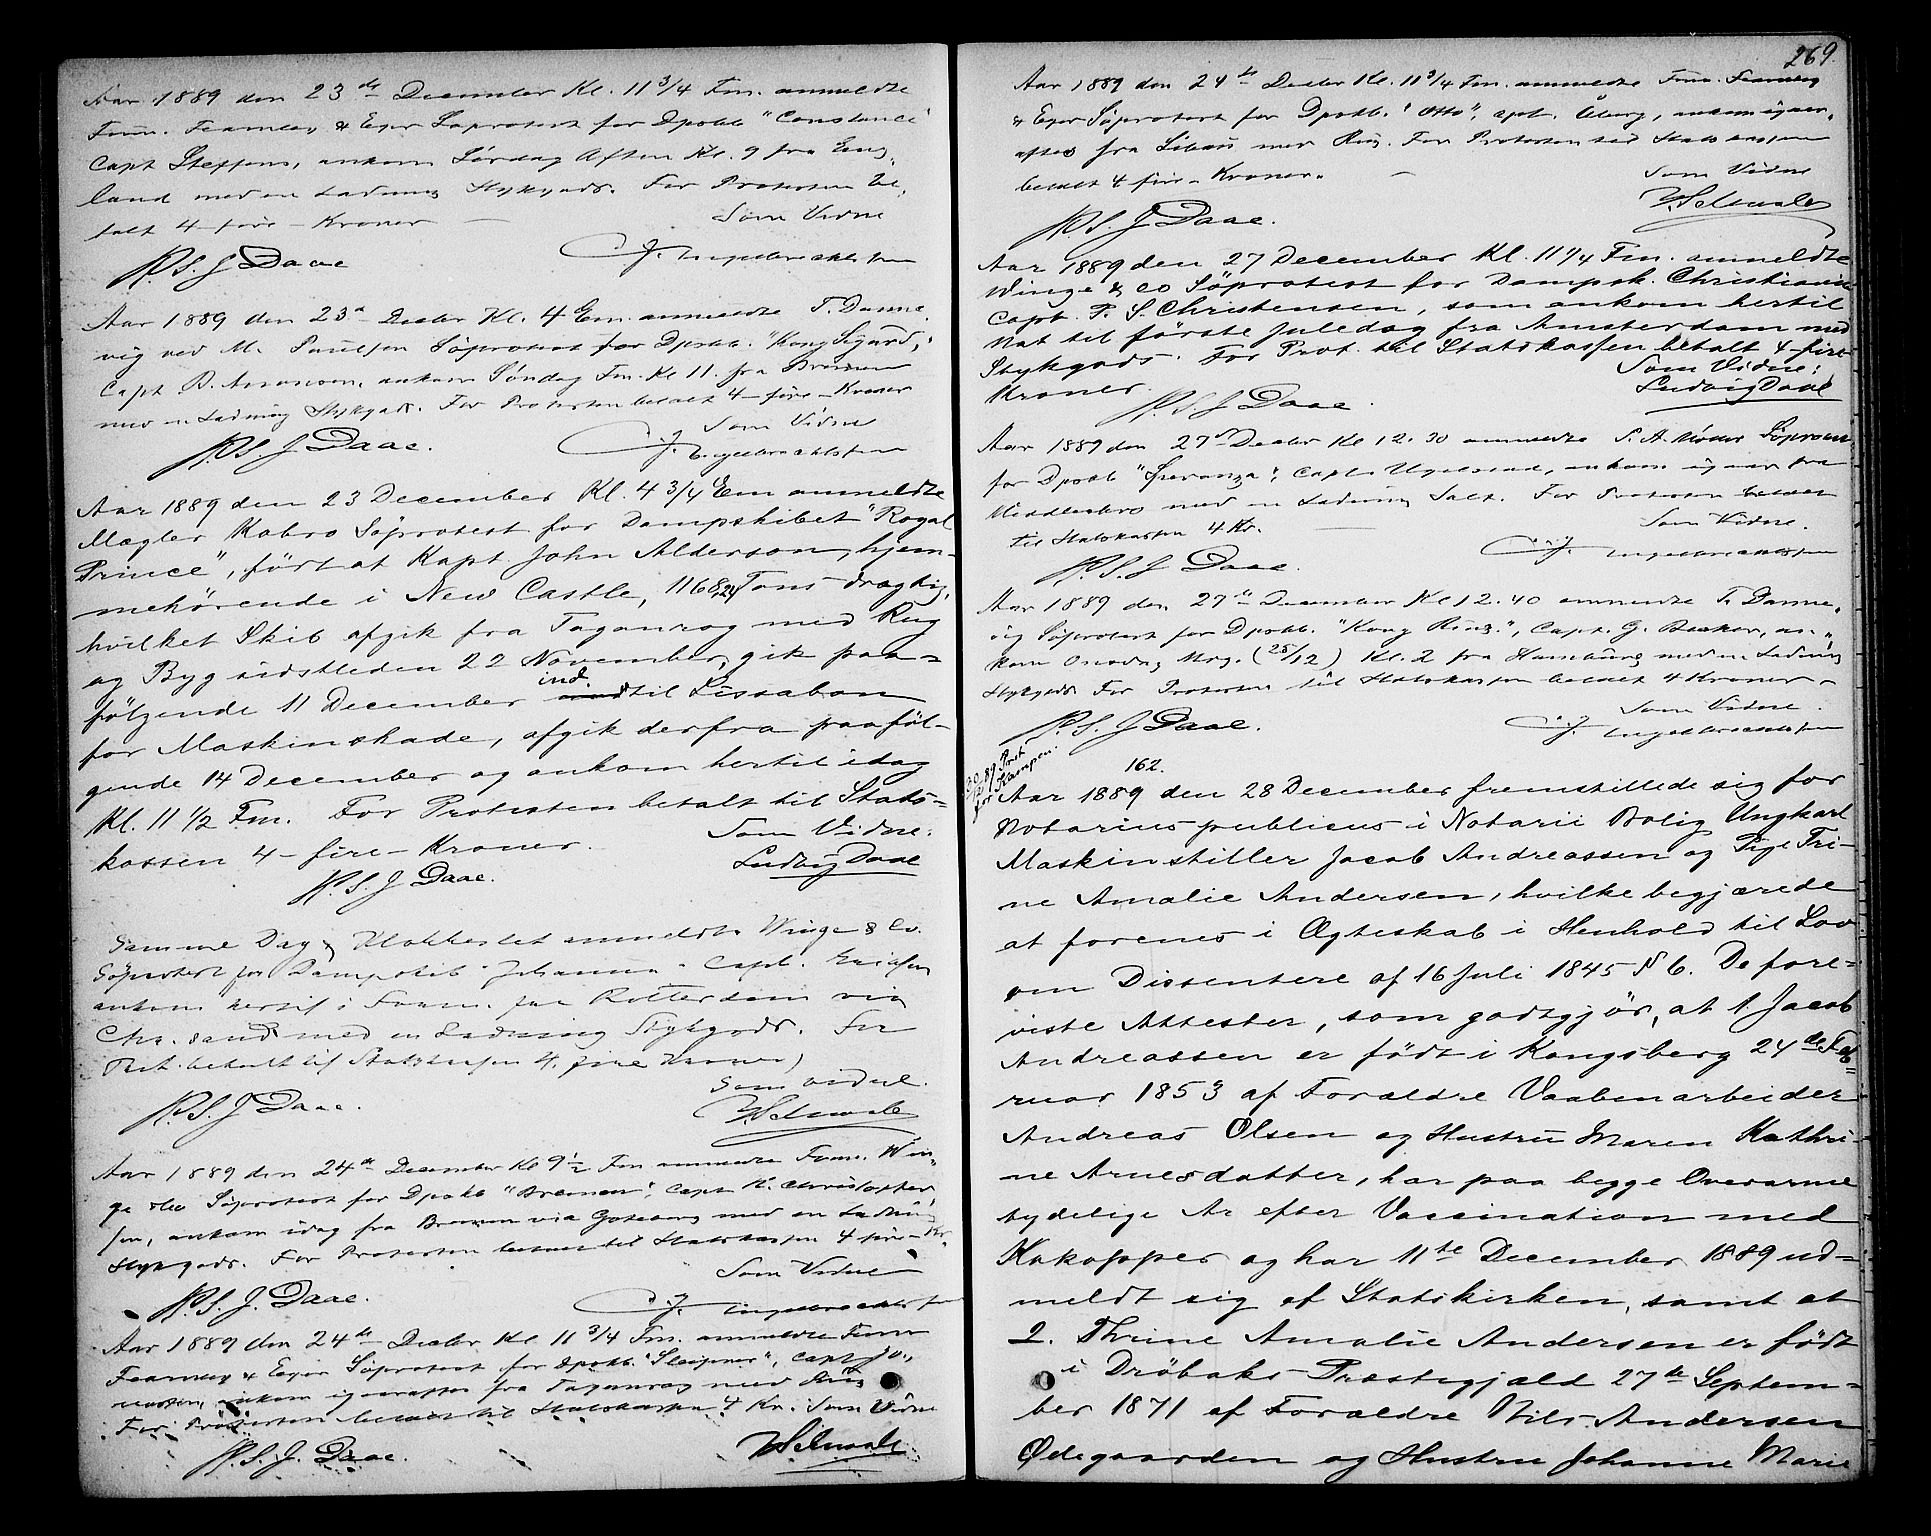 Aar 1889 den 23de December Kl. 11 3/4 Fm. anmeldte
Firm. Fearnley & Eger Søprotest for Dpskb "Constance"
Capt Steffens, ankom Lørdag Aften Kl. 9 fra Eng-
land med en Ladning Stykgods. For Protesten be-
talt 4 - fire - Kroner
Som Vidne
N.S.J Daae
J. Engelbrechtsen
Aar 1889 den 23de Decbr Kl. 4 Em. anmeldte T. Danne-
vig ved M. Paulsen Søprotest for Dpskb. "Kong Sigurd",
Capt. B. Aronsen, ankom Søndag Fm. Kl 11. fra Bremen
med en Ladning Stykgods. For Protesten betalt 4 - fire - Kroner
Som Vidne
N.S.J Daae.
J. Engelbrechtsen
Aar 1889 den 23 December Kl. 4 3/4 Em anmeldte
Mægler Kabro Søprotest for Dampskibet "Royal
Prince", ført af Kapt John Alderson, hjem-
mehørende i New Castle, 1168,24 Tons drægtig,
hvilket Skib afgik fra Taganrog med Rug
og Byg sidstleden 22 November, gik paa-
følgende 11 December ind til Lissabon
for Maskinskade, afgik derfra paaføl-
gende 14 December og ankom hertil idag
Kl. 11 1/2 Fm. For Protesten betalt til Stats-
kassen 4 - fire - Kroner.
Som Vidne:
N.S.J Daae.
Ludvig Daae
Samme Dag & Klokkeslet anmeldte Winge & Co.
Søprotest for Dampskib "Johanna" Capt. Eriksen
ankom hertil i Form. fra Rotterdam via
Chr.sand med en Ladning Stykgods. For
Prot. betalt til Statskassen 4, fire Kroner,
Som vidne.
N.S.J Daae.
Aar 1889 den 24de December Kl 9 1/2 Fm anmeldte Firm. Win-
ge & Co Søprotest for Dpskb "Bremen", Capt K. Christopher-
sen, ankom idag fra Bremen via Gøteborg med en Ladning
Stykgods. For Protesten betalt til Statskassen 4 fire - Kr.
Som Vidne
N.S.J. Daae.
J. Engelbrechtsen
Aar 1889 den 24de Decbr Kl 11 3/4 Fm. anmeldte Firm
Fearnley & Eger Søprotest for Dpskb. "Sleipner", Capt Jo-
ankom fra Taganrog med Rug
For Protesten betalt til Statskassen 4 Kr. Som Vidne
N.S.J. Daae.
269.
Aar 1889 den 24de Decbr Kl. 11 3/4 Fm. anmeldte Firm. Fearnley
& Eger Søprotest for Dpskb. "Otto", cpt. Åberg, ankom igaar-
aftes fra Libau med Rug. For Protesten til Statskassen
betalt 4 fire - Kroner.
Som Vidne
N.S.J Daae.
Aar 1889 den 27 December Kl. 11 1/4 Fm. anmeldte
Winge & Co Søprotest for Dampsk. Christiania
Capt. P. S. Christensen, som ankom hertil
Nat til første Juledag fra Amsterdam med
Stykgods. For Prot. til Statskassen betalt 4 - fire -
Kroner.
Som Vidne:
N.S.J Daae.
Ludvig Daae
Aar 1889 den 27de Decbr Kl 12.30 anmeldte S. A. Søprotest
for Dpskb "Speranza", Capt. Ugelstad, ankom igaar fra
Middlesbro med en Ladning Salt. For Protesten betalt
til Statskassen 4 Kr.
Som Vidne.
N.S.J Daae.
J. Engelbrechtsen
Aar 1889 den 27de December Kl 12.40 anmeldte T. Danne-
vig Søprotest for Dpskb. "Kong Ring", Capt. G. Becker, an-
kom Onsdag Mrg. (25/12) Kl. 2 fra Hamburg med en Ladning
Stykgods For Protesten til Statskassen betalt 4 Kroner.
Som Vidne.
N.S.J Daae.
J. Engelbrechtsen
162.
Aar 1889 den 28 December fremstillede sig for
Notarius publicus i Notarii Bolig Ungkarl
Maskinstiller Jacob Andreassen og Pige Tri-
ne Amalie Andersen, hvilke begjærede
at forenes i Ægteskab i Henhold til Lov
om Dissentere af 16 Juli 1845 § 6. De fore-
viste Attester, som godtgjør, at 1 Jacob
Andreassen er født i Kongsberg 24de Feb-
ruar 1853 af Forældre Vaabenarbeider
Andreas Olsen og Hustru Maren Kathri-
ne Arnesdatter, har paa begge Overarme
tydelige Ar efter Vaccination med
Kokopper og har 11te December 1889 ud-
meldt sig af Statskirken, samt at
2. Thrine Amalie Andersen er født
i Drøbaks Præstegjæld 27de Septem-
ber 1871 af Forældre Nils Andersen
Ødegaarden og Hustru Johanne Marie